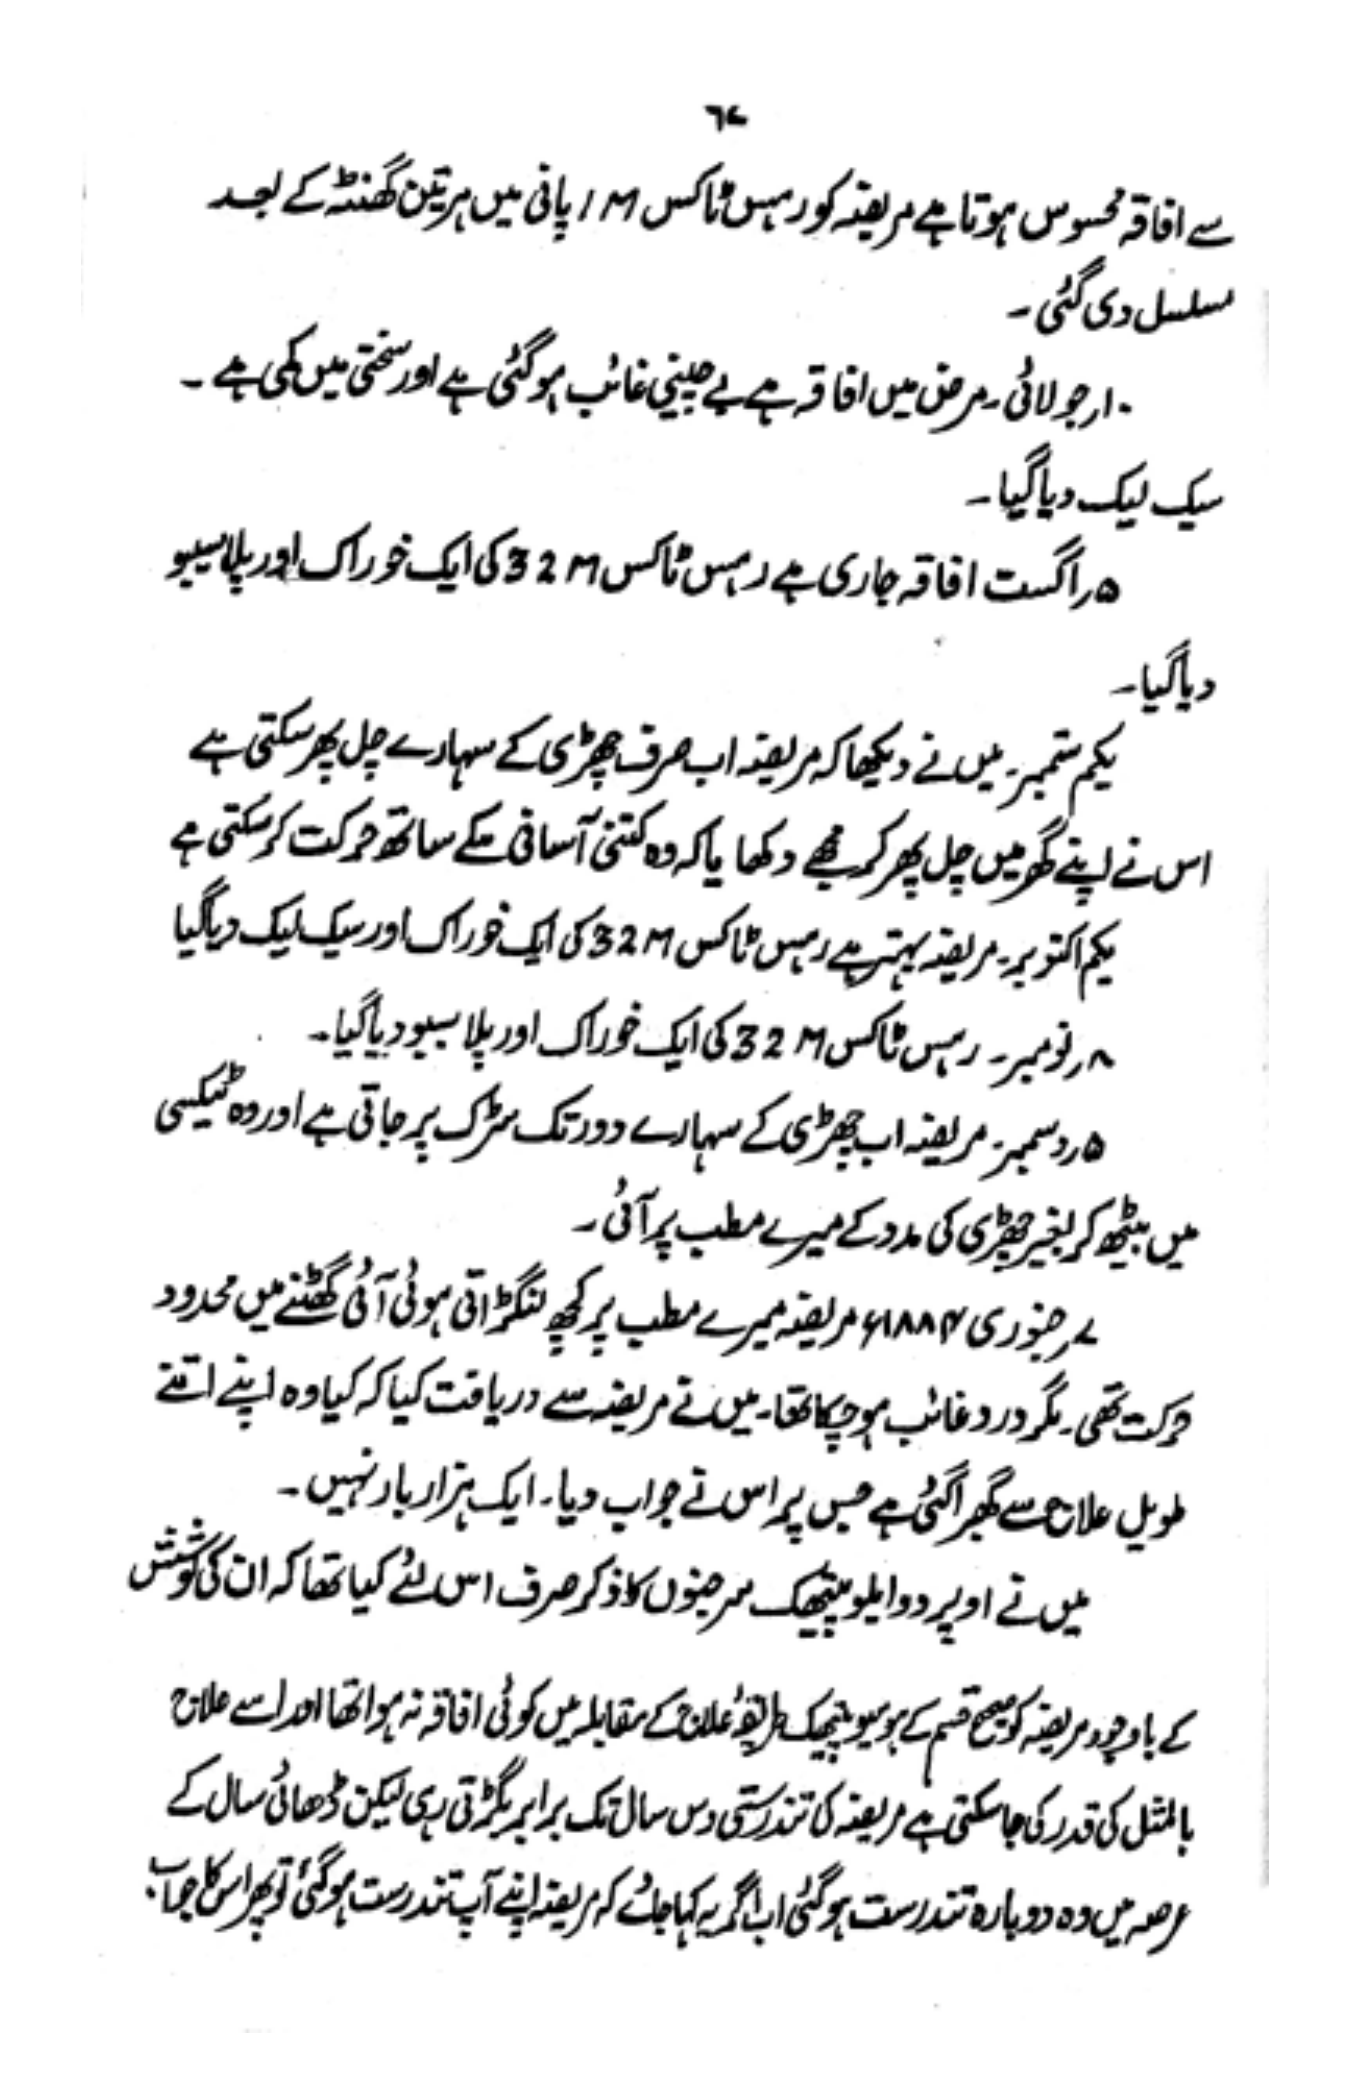 ٦٧
سے افاقہ محسوس ہوتا ہے مریضہ کو رہس ٹاکس 1M پانی میں ہر تین گھنٹہ کے بعد
مسلسل دی گئی ۔
۱۰ر جولائی۔ مرض میں افاقہ ہے بے چینی غائب ہو گئی ہے اور سختی میں کمی ہے ۔
سیک لیک دیا گیا ۔
۵ر اگست افاقہ جاری ہے رہس ٹاکس 32M کی ایک خوراک اور پلاسیبو
دیا گیا ۔
یکم ستمبر۔ میں نے دیکھا کہ مریضہ اب صرف چھڑی کے سہارے چل پھر سکتی ہے
اس نے اپنے گھر میں چل پھر کر مجھے دکھا یا کہ وہ کتنی آسانی کے ساتھ حرکت کر سکتی ہے
یکم اکتوبر۔ مریضہ بہتر ہے رہس ٹاکس 32M کی ایک خوراک اور سیک لیک دیا گیا
۸ر نومبر۔ رہس ٹاکس 32M کی ایک خوراک اور پلاسیبو دیا گیا۔
۵ر دسمبر۔ مریضہ اب چھڑی کے سہارے دور تک سڑک پر جاتی ہے اور وہ ٹیکسی
میں بیٹھ کر بغیر چھڑی کی مدد کے میرے مطب پر آئی ۔
۷ر جنوری ۱۸۸۴ء مریضہ میرے مطب پر کچھ لنگڑاتی ہوئی آئی گھٹنے میں محدود
حرکت تھی۔ مگر درد غائب ہو چکا تھا۔ میں نے مریضہ سے دریافت کیا کہ کیا وہ اپنے اتنے
طویل علاج سے گھبرا گئی ہے جس پر اس نے جواب دیا۔ ایک ہزار بار نہیں ۔
میں نے اوپر دو ایلوپیتھک سرجنوں کا ذکر صرف اس لئے کیا تھا کہ ان کی کوشش
کے باوجود مریضہ کو صحیح قسم کے ہومیوپیتھک طریقۂ علاج کے مقابلہ میں کوئی افاقہ نہ ہوا تھا اور اسے علاج
بالمثل کی قدر کی جا سکتی ہے مریضہ کی تندرستی دس سال تک برابر بگڑتی رہی لیکن ڈھائی سال کے
عرصہ میں وہ دوبارہ تندرست ہو گئی اب اگر یہ کہا جائے کہ مریضہ اپنے آپ تندرست ہو گئی تو پھر اس کا جواب